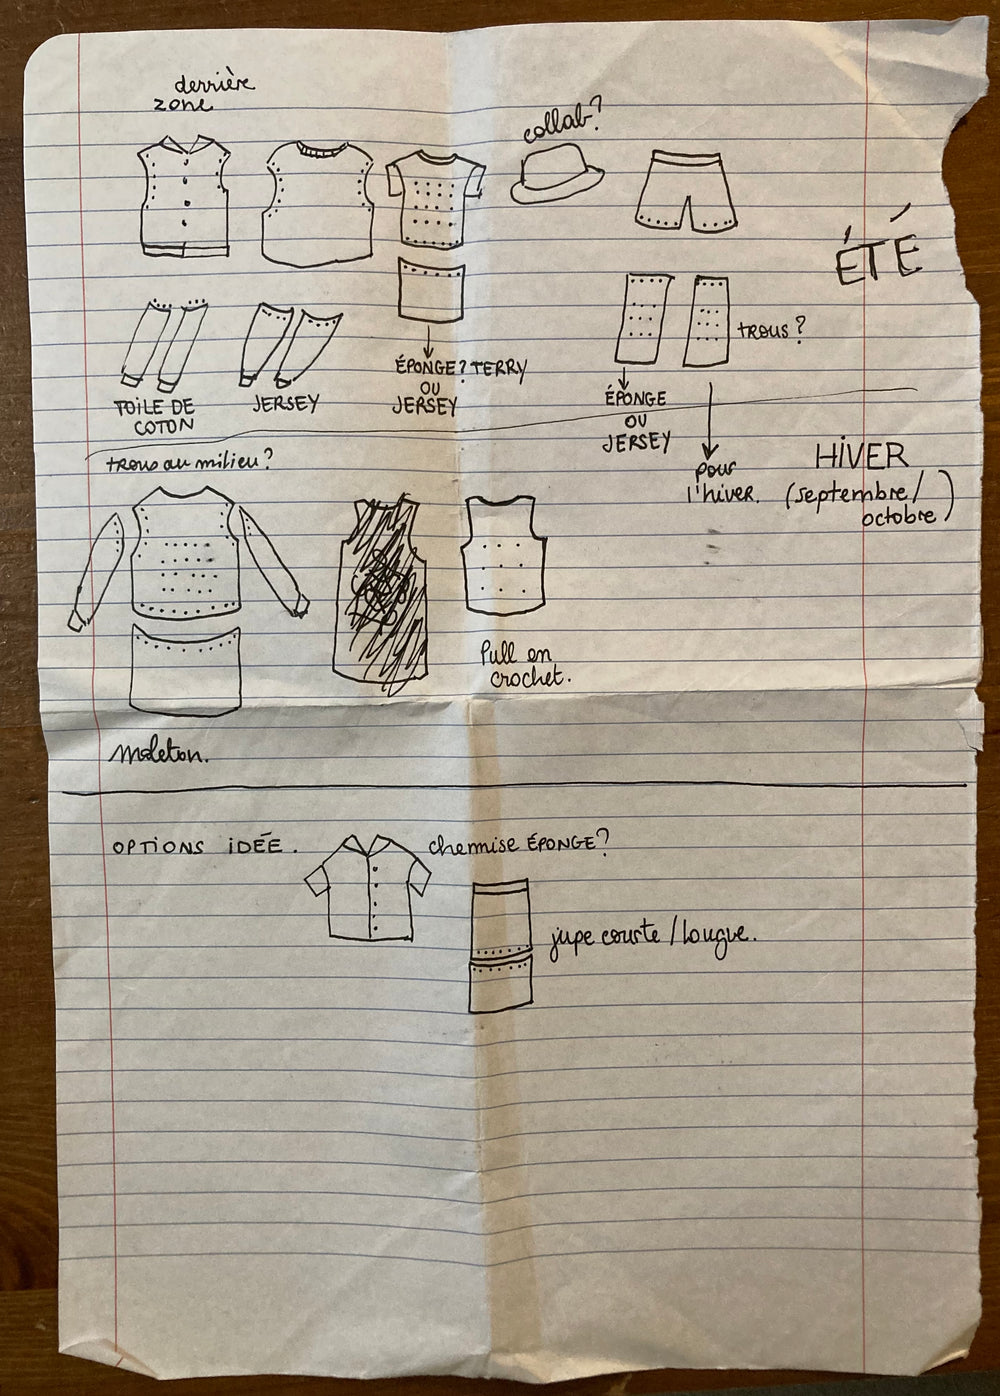 derrière
zone
collab?
ÉTÉ
trous?
ÉPONGE? TERRY
OU
JERSEY
TOILE DE
COTON
JERSEY
ÉPONGE
OU
JERSEY
pour
l'hiver.
HIVER
(septembre/
octobre)
trous au milieu?
Pull en
crochet.
moleton.
OPTIONS IDÉE.
chemise ÉPONGE?
jupe courte / longue.